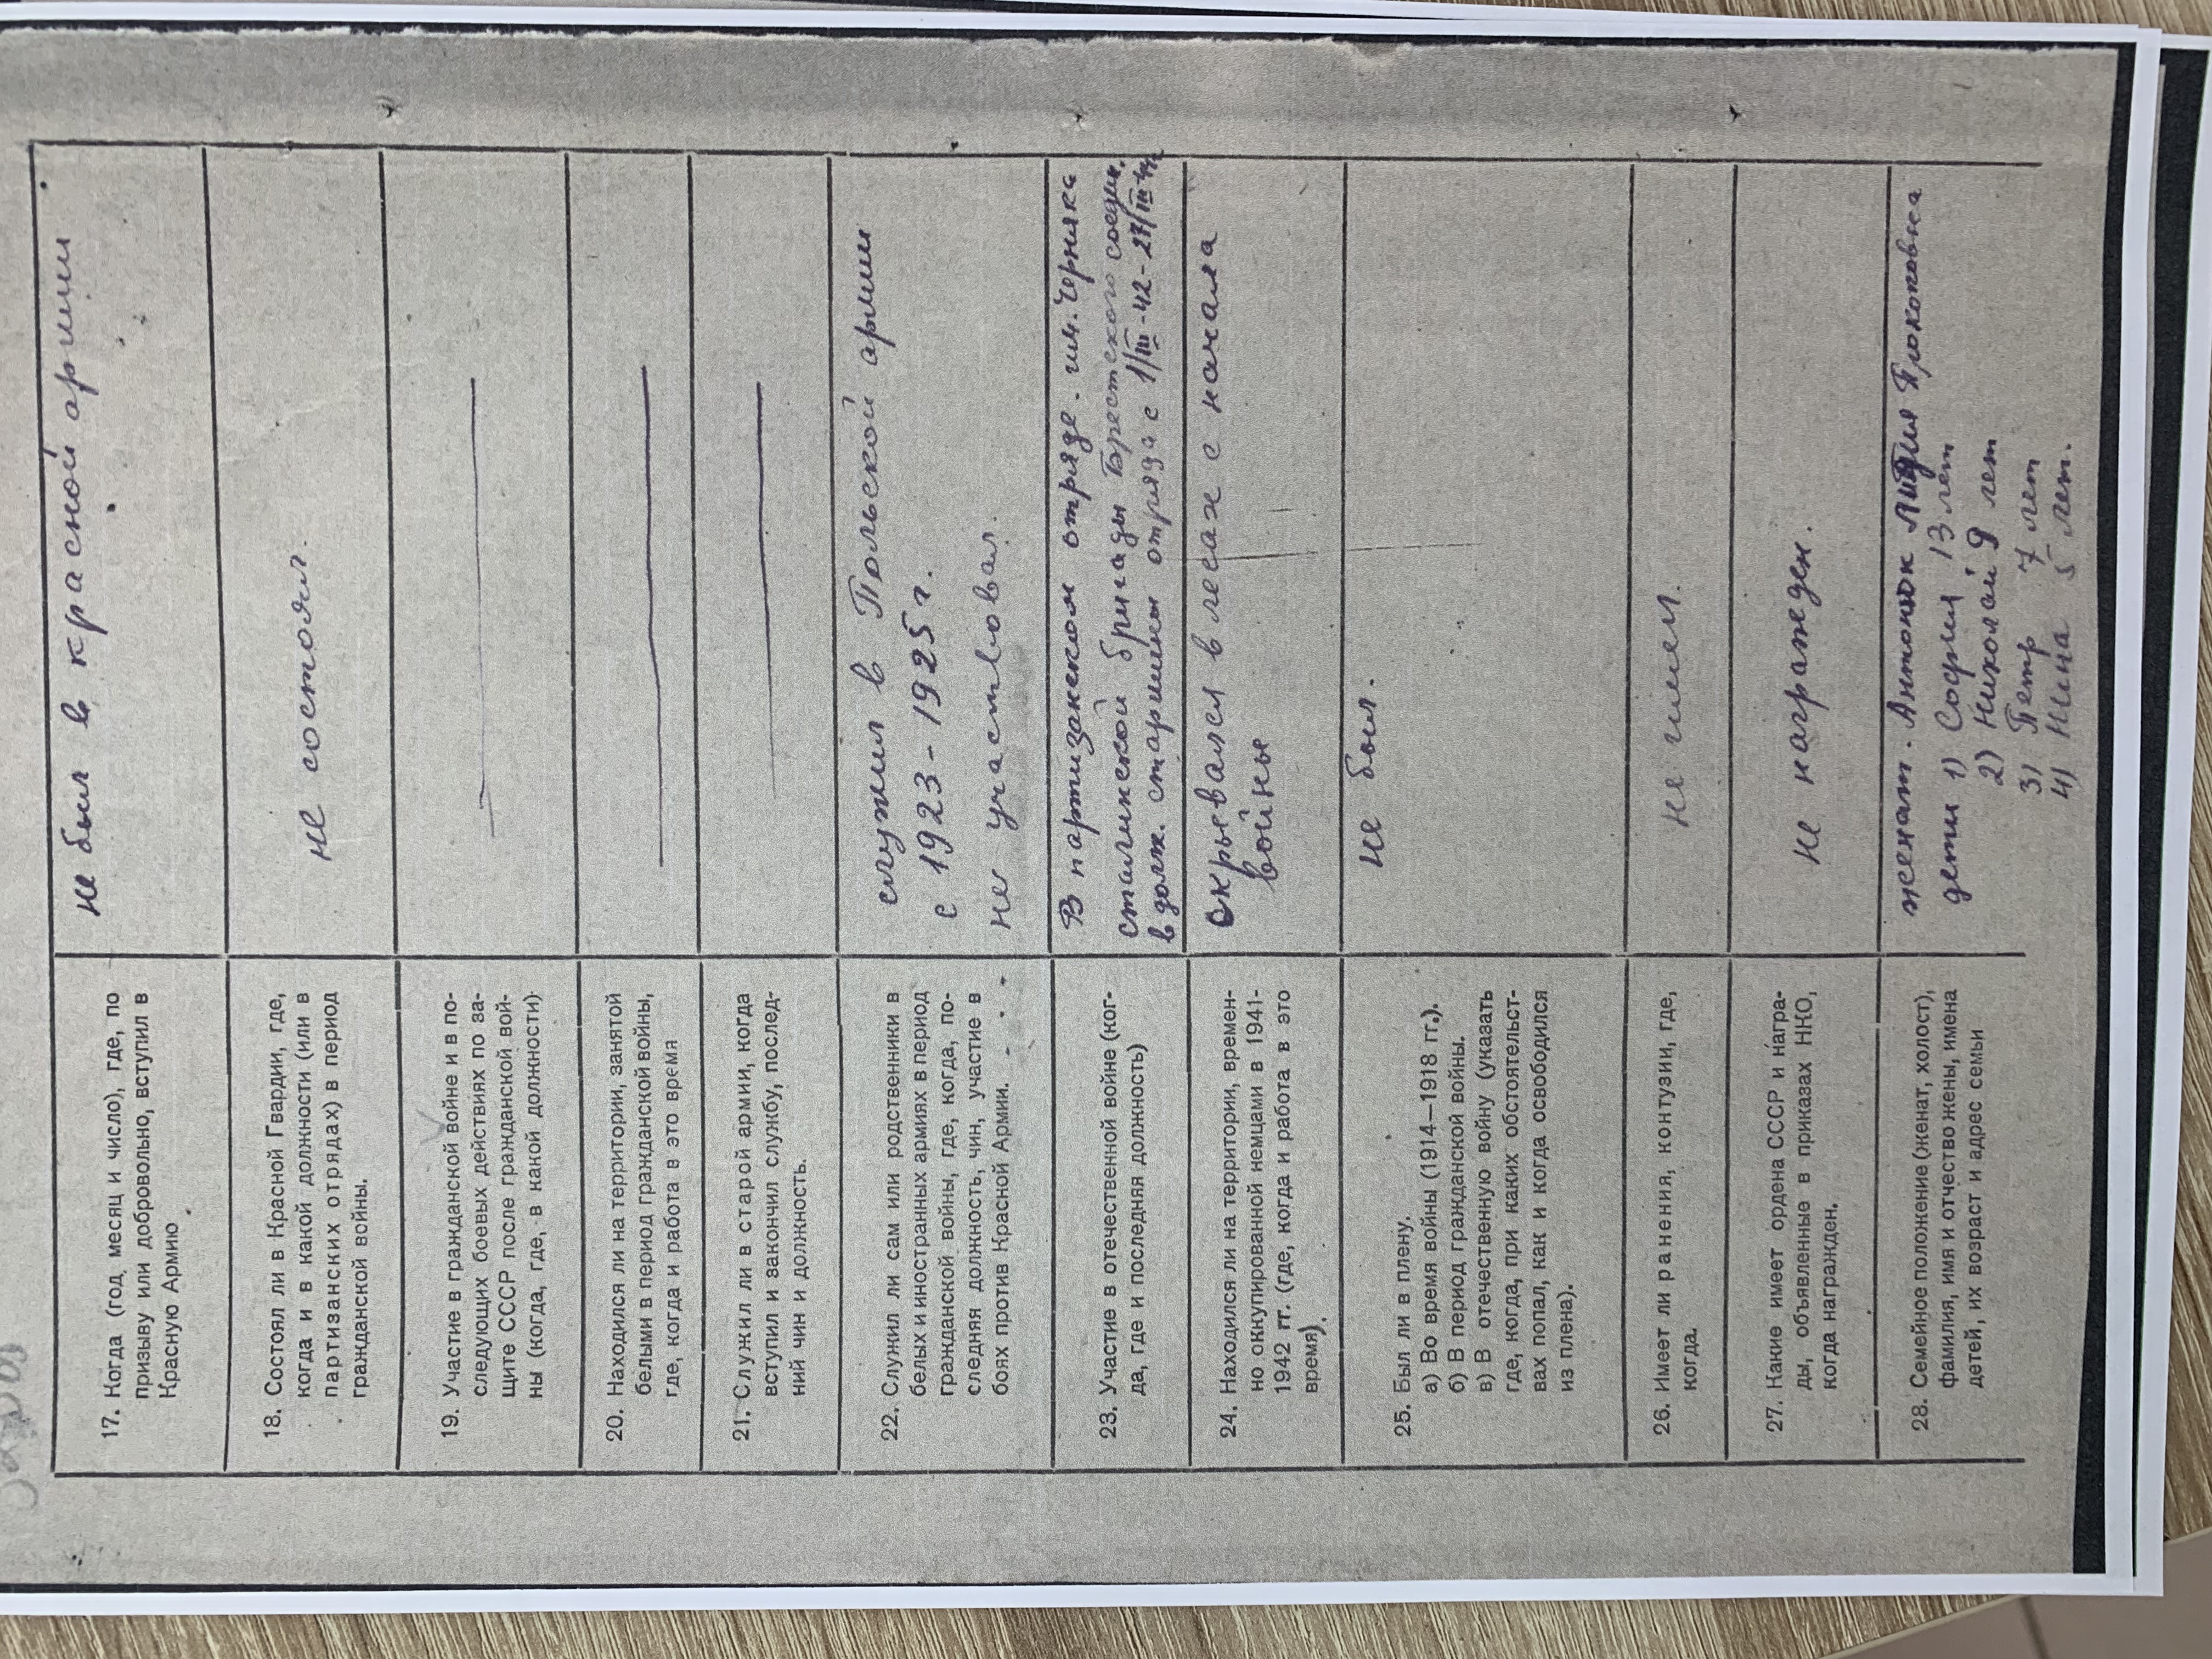 17. Когда (год, месяц и число), где, по
призыву или добровольно, вступил в
Красную Армию
не был в красной армии
18. Состоял ли в Красной Гвардии, где,
когда и в какой должности (или в
партизанских отрядах) в период
гражданской войны.
не состоял.
19. Участие в гражданской войне и в по-
следующих боевых действиях по за-
щите СССР после гражданской вой-
ны (когда, где, в какой должности).
20. Находился ли на территории, занятой
белыми в период гражданской войны,
где, когда и работа в это время
21. Служил ли в старой армии, когда
вступил и закончил службу, послед-
ний чин и должность.
22. Служил ли сам или родственники в
белых и иностранных армиях в период
гражданской войны, где, когда, по-
следняя должность, чин, участие в
боях против Красной Армии.
служил в Польской армии
с 1923-1925 г.
не участвовал.
23. Участие в отечественной войне (ког-
да, где и последняя должность)
В партизанском отряде. им. Черняка
сталинской бригады Брестского соедин.
в долж. старшины отряда с 1/III-42-27/III-44
24. Находился ли на территории, времен-
но оккупированной немцами в 1941-
1942 гг. (где, когда и работа в это
время).
скрывался в лесах с начала
войны
25. Был ли в плену.
а) Во время войны (1914—1918 гг.).
б) В период гражданской войны.
в) В отечественную войну (указать
где, когда, при каких обстоятельст-
вах попал, как и когда освободился
из плена).
не был.
26. Имеет ли ранения, контузии, где,
когда.
не имел.
27. Какие имеет ордена СССР и награ-
ды, объявленные в приказах НКО,
когда награжден.
не награжден.
28. Семейное положение (женат, холост),
фамилия, имя и отчество жены, имена
детей, их возраст и адрес семьи
женат. Антонюк Лидия Прокоповна
дети 1) София 13 лет
2) Николай 9 лет
3) Петр 7 лет
4) Нина 5 лет.